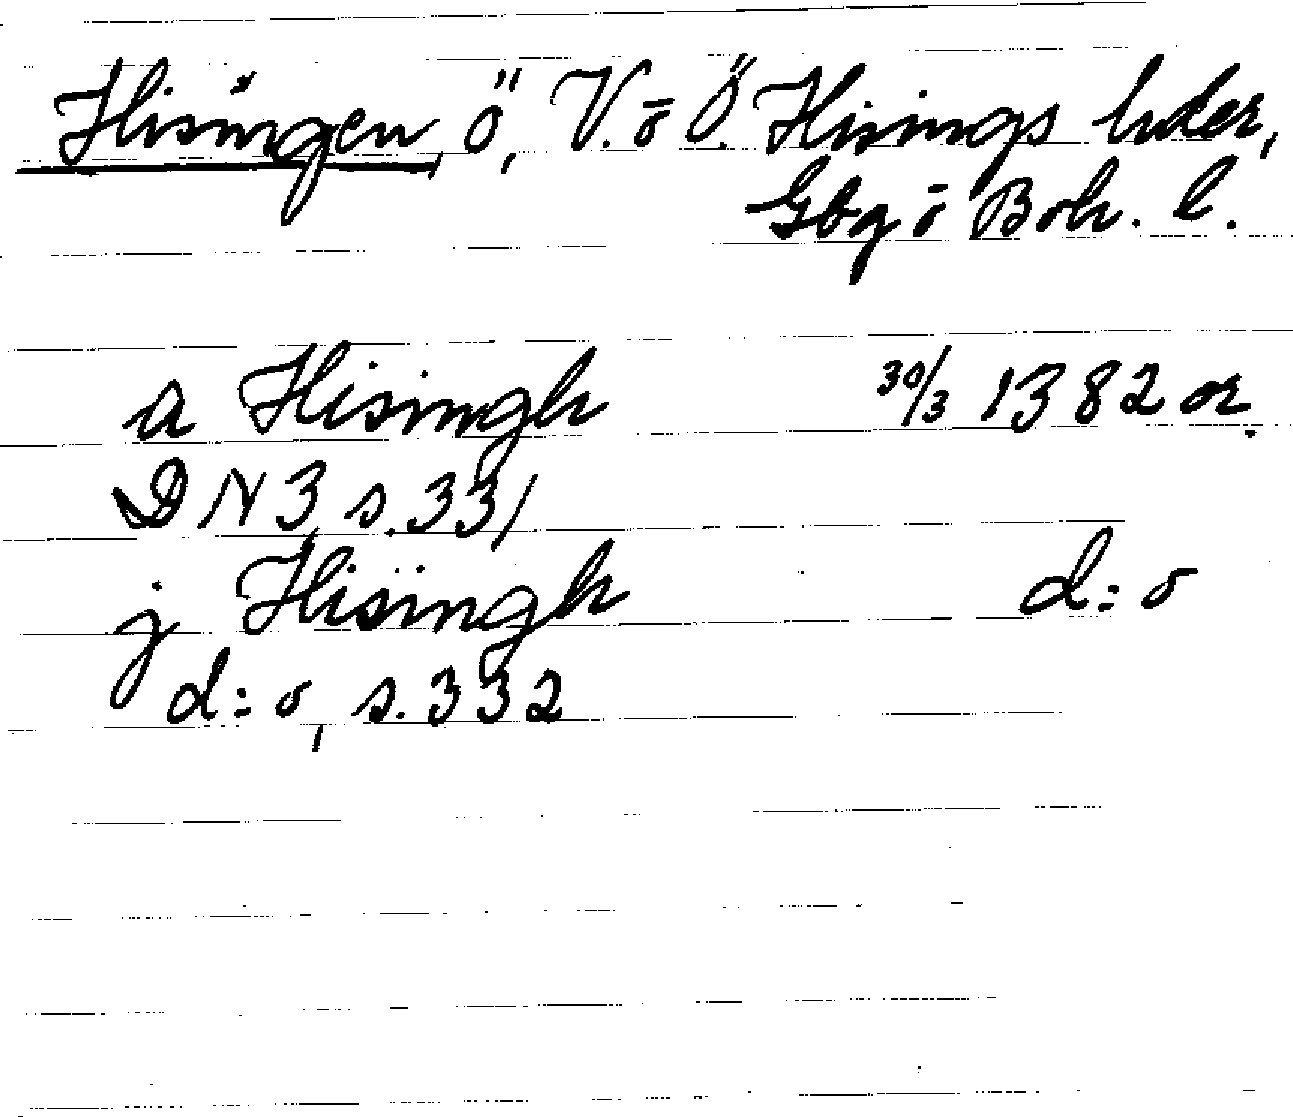 Hisingen, ö, V. o Ö. Hisings hder,
Gbg o Boh. l.
a Hisingh 30/3 1382 or.
DN 3 s. 331
j Hisingh d:o
d:o, s. 332